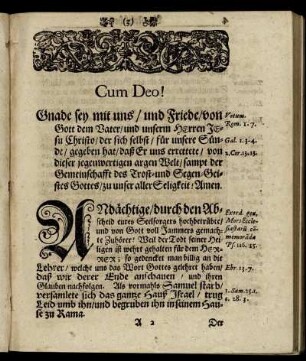 (5)
Cum Deo!
Gnade sey mit uns/ und Friede/von
Gott dem Vater/und unserm HErren Je-
su Christo/ der sich selbst/ für unsere Sün-
de/ gegeben hat/ daß Er uns errettete/ von
dieser gegenwertigen argen Welt/ sampt der
Gemeinschafft des Trost-und Segen-Gei-
stes Gottes/ zu unser aller Seligkeit/ Amen.
Votum.
Rom. 1. 7.
Gal. 1. 3. 4.
2. Cor. 13. 13.
ANdächtige/ durch den Ab-
scheid eures Seelsorgers hochbetrübte/
und von Gott voll Jammers gemach-
te Zuhörer: Weil der Tod seiner Hei-
ligen ist werht gehalten für dem HER-
REN; so gedencket man billig an die
Lehrer/ welche uns das Wort Gottes gelehret haben/
daß wir derer Ende anschauen/ und ihren
Glauben nachfolgen. Als vormahls Samuel starb/
versamlete sich das gantze Hauß Israel/ trug
Leid umb ihn/und begruben ihn in seinem Hau-
se zu Rama.
Ps. 116. 15.
Ebr. 13. 7.
1. Sam. 25. 1.
c. 28. 3.
A 2
Der